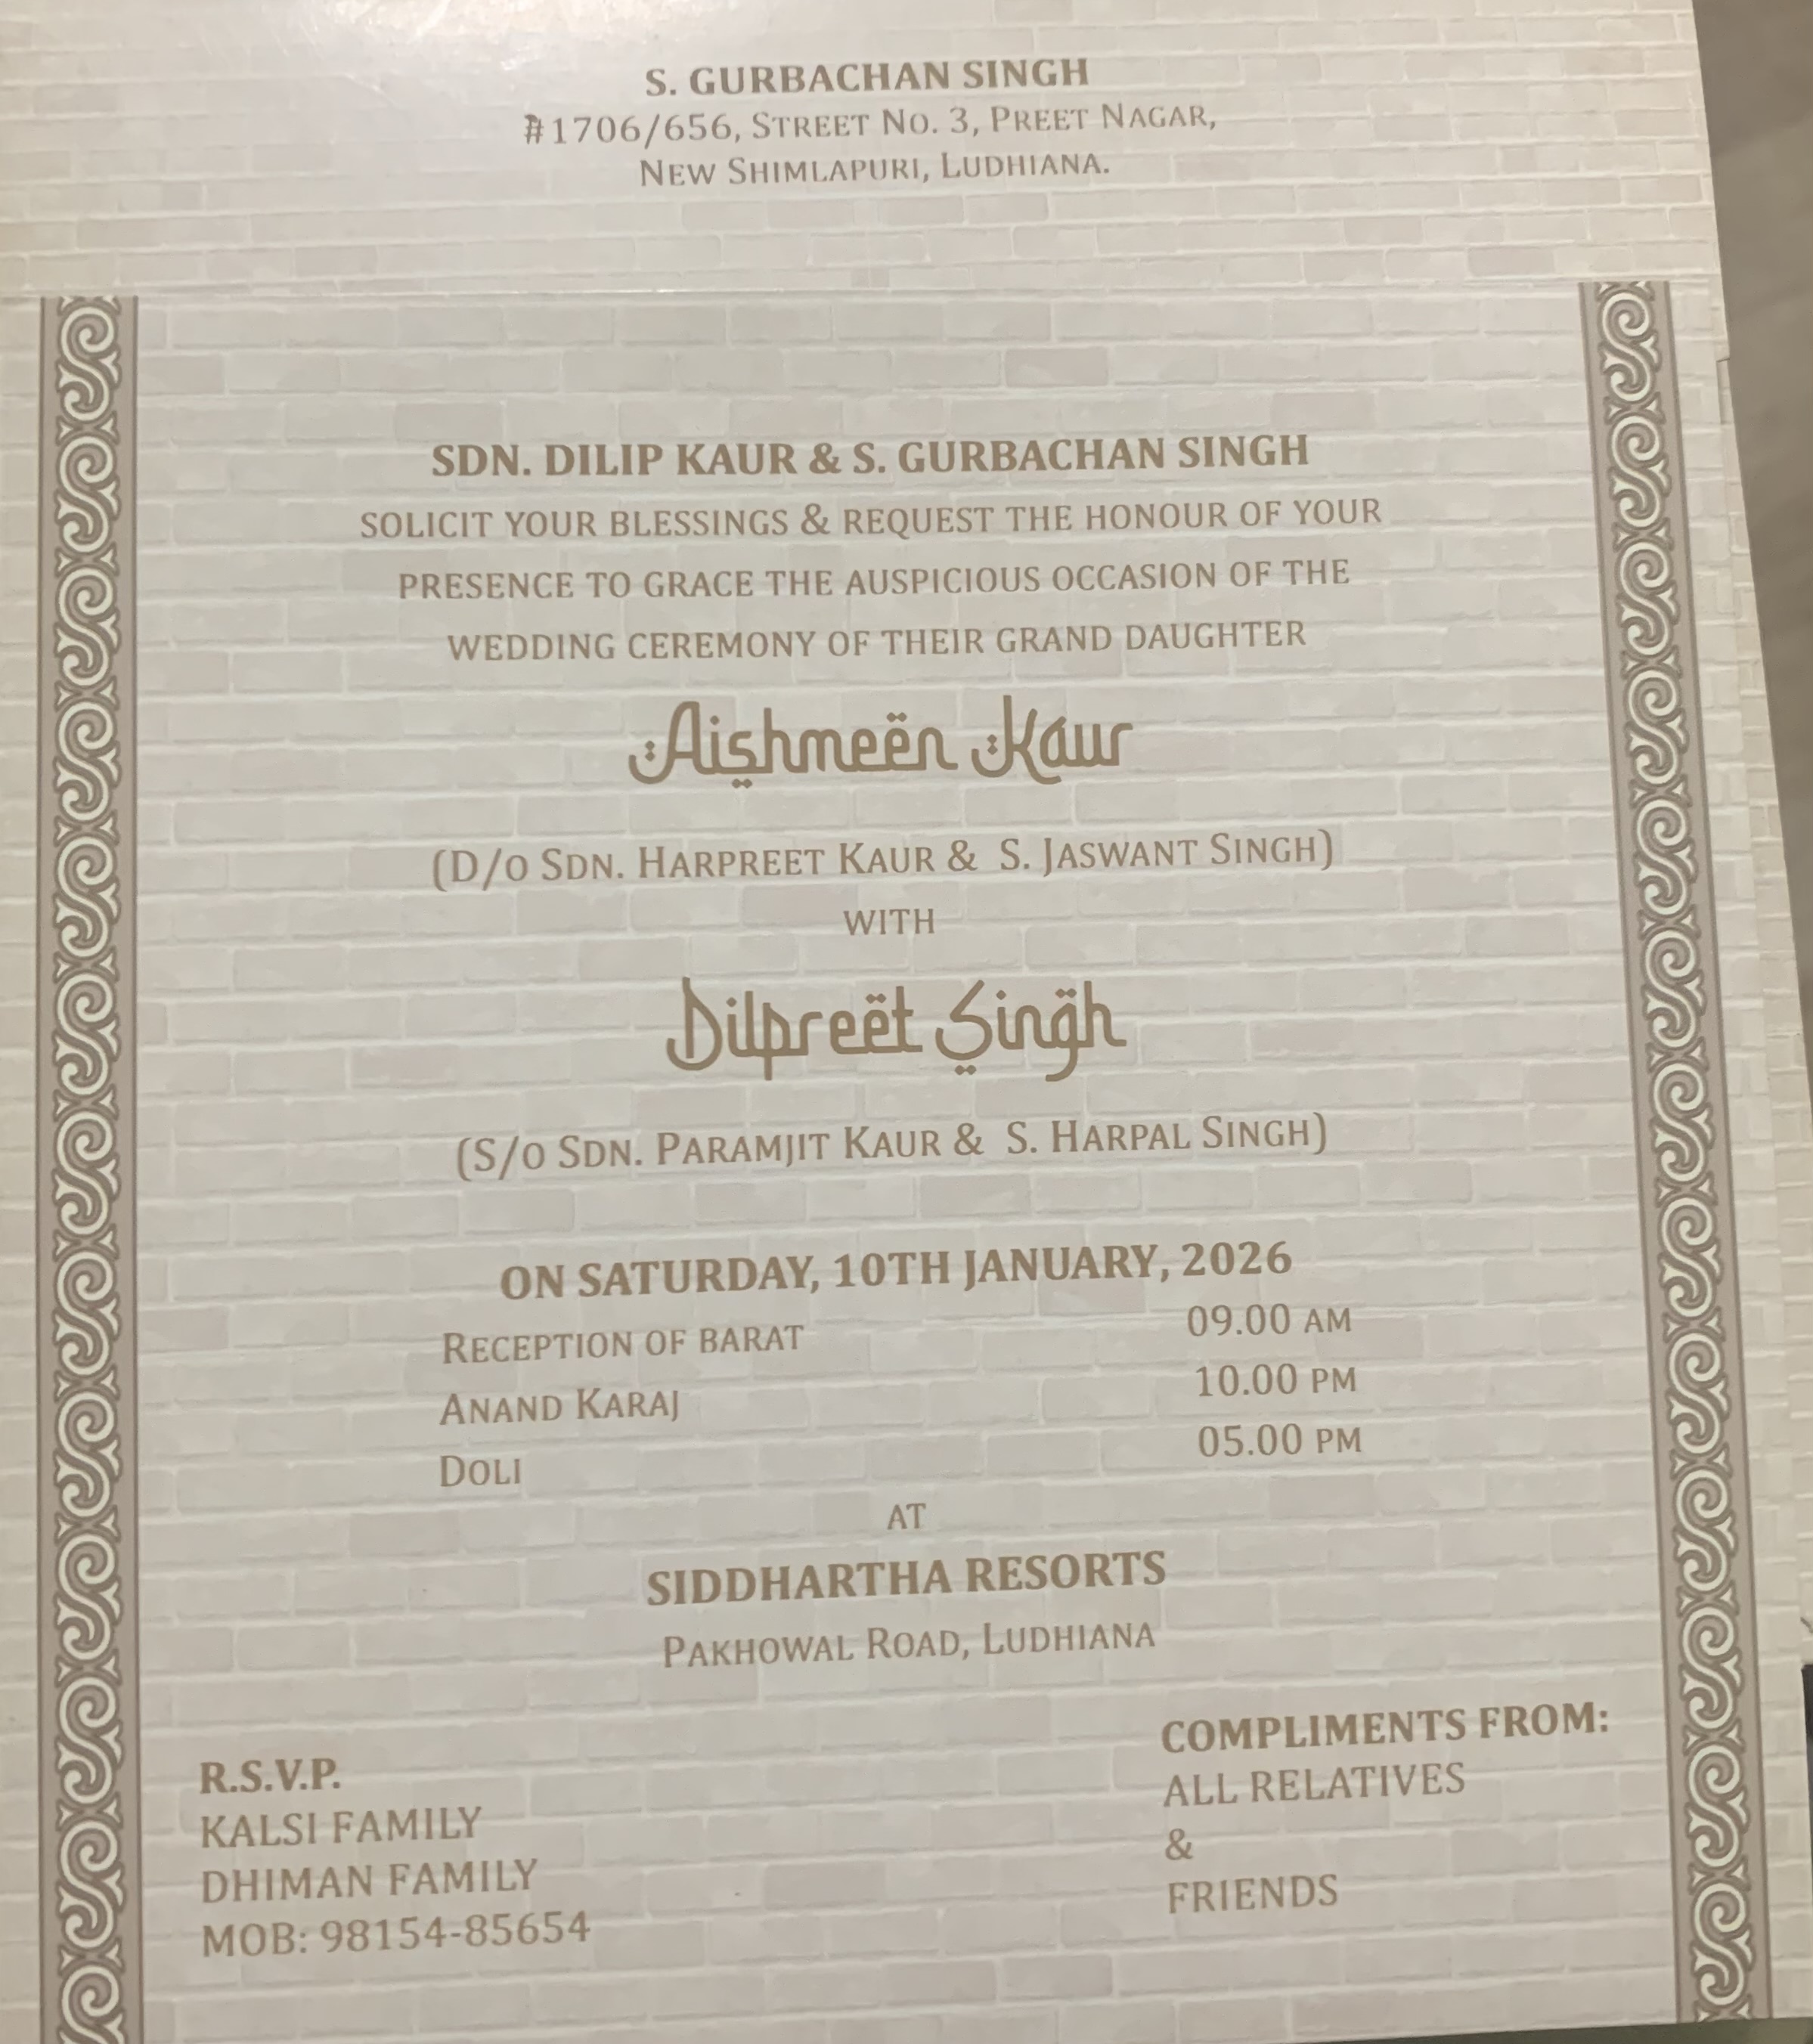 S. GURBACHAN SINGH
#1706/656, STREET NO. 3, PREET NAGAR,
NEW SHIMLAPURI, LUDHIANA.
SDN. DILIP KAUR & S. GURBACHAN SINGH
SOLICIT YOUR BLESSINGS & REQUEST THE HONOUR OF YOUR
PRESENCE TO GRACE THE AUSPICIOUS OCCASION OF THE
WEDDING CEREMONY OF THEIR GRAND DAUGHTER
Aishmeen Kaur
(D/O SDN. HARPREET KAUR & S. JASWANT SINGH)
WITH
Dilpreet Singh
(S/O SDN. PARAMJIT KAUR & S. HARPAL SINGH)
ON SATURDAY, 10TH JANUARY, 2026
RECEPTION OF BARAT 09.00 AM
ANAND KARAJ 10.00 PM
DOLI 05.00 PM
AT
SIDDHARTHA RESORTS
PAKHOWAL ROAD, LUDHIANA
R.S.V.P.
KALSI FAMILY
DHIMAN FAMILY
MOB: 98154-85654
COMPLIMENTS FROM:
ALL RELATIVES
&
FRIENDS